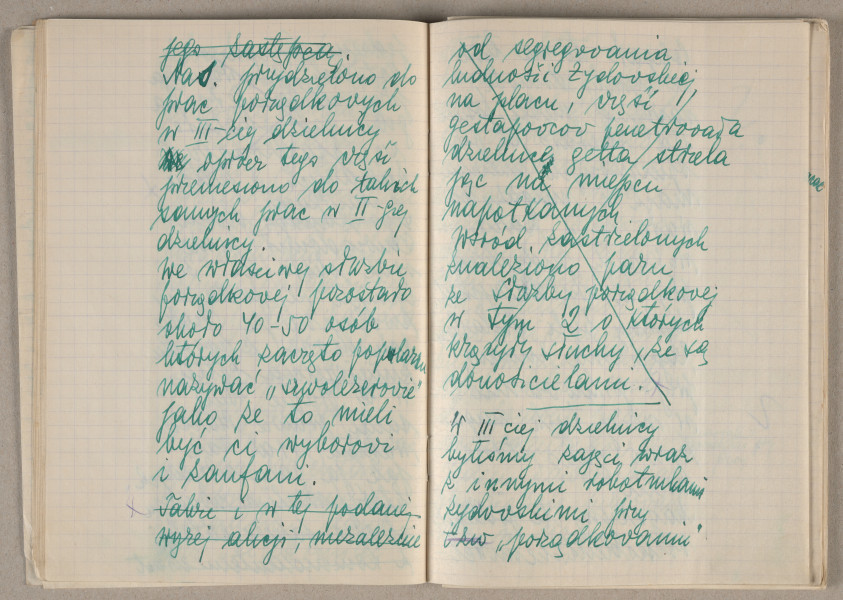 jego zastępca.
Nas. przydzielono do
prac porządkowych
w III-ciej dzielnicy
oprócz tego część
przeniesiono do takich
samych prac w II-giej
dzielnicy.
We właściwej służbie
porządkowej pozostało
około 40-50 osób
których zaczęto popularnie
nazywać „szwoleżerowie"
jako że to mieli
być ci wyborowi
i zaufani.
Także i w tej podanej
wyżej akcji, niezależnie
od segregowania
ludności żydowskiej
na placu, część
gestapowcow penetrowała
dzielnicę getta strzela
jąc na miejscu
napotkanych
Wśród zastrzelonych
znaleziono paru
ze służby porządkowej
w tym 2 o których
krążyły słuchy, że są
donosicielami.
W III ciej dzielnicy
byliśmy zajęci wraz
z innymi robotnikami
żydowskimi przy
tzw „porządkowaniu"